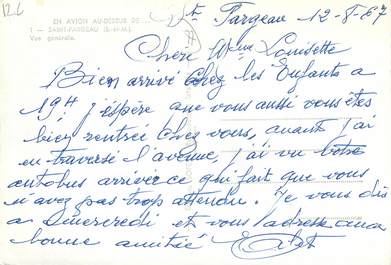 EN AVION AU-DESSUS DE ...
1 - SAINT-FARGEAU (S.-et-M.)
Vue générale.
St Fargeau 12-8-67
Chère Mme Louisette
Bien arrivé chez les Enfants a
19H j'espère que vous aussi vous êtes
bien rentrée chez vous, quant j'ai
eu traversé l'avenue, j'ai vu votre
autobus arriver ce qui fait que vous
n'avez pas trop attendu. Je vous dis
a Mercredi et vous adresse ma
bonne amitié